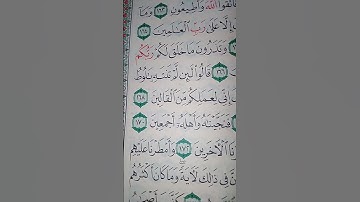 فَاتَّقُوا اللَّهَ وَأَطِيعُونِ ١٦٣ وَمَا
إِلَّا عَلَىٰ رَبِّ الْعَالَمِينَ
وَتَذَرُونَ مَا خَلَقَ لَكُمْ رَبُّكُم
١٦٦ قَالُوا لَئِن لَّمْ تَنتَهِ يَا لُوطُ
إِنِّي لِعَمَلِكُم مِّنَ الْقَالِينَ
١٦٨
فَنَجَّيْنَاهُ وَأَهْلَهُ أَجْمَعِينَ ١٧٠
الْآخَرِينَ ١٧٢ وَأَمْطَرْنَا عَلَيْهِم
فِي ذَٰلِكَ لَآيَةً وَمَا كَانَ أَكْثَرُهُم
كَذَّبَ أَصْحَابُ